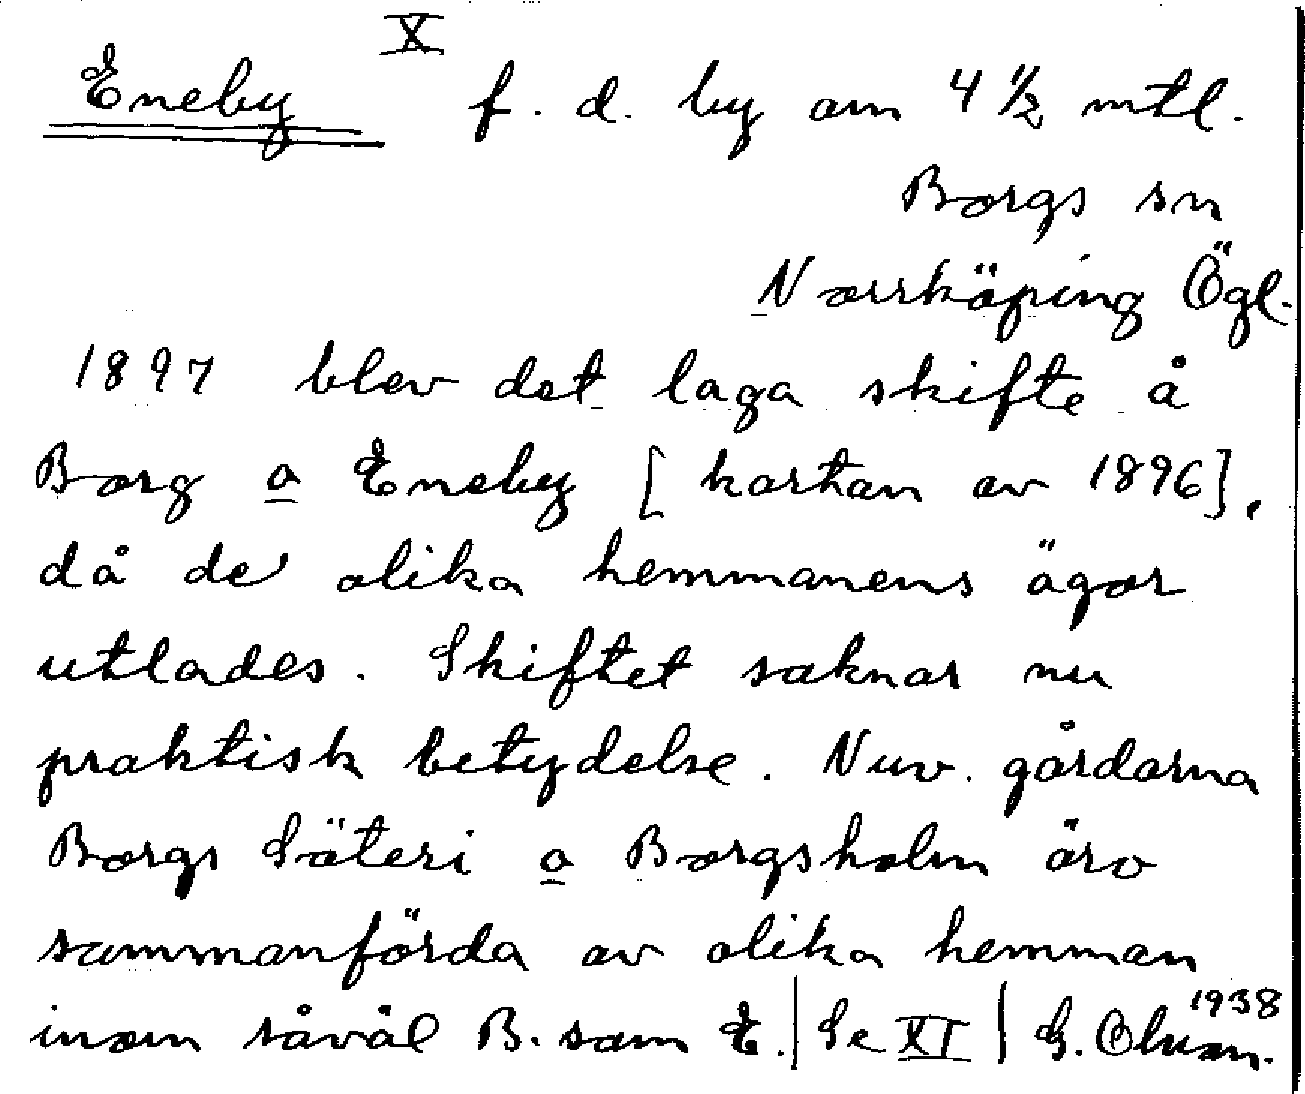 X
Eneby f. d. by om 4 1/2 mtl.
Borgs sn
Norrköping Ögl.
1897 blev det laga skifte å
Borg o Eneby [kartan av 1896],
då de olika hemmanens ägor
utlades. Skiftet saknar nu
praktisk betydelse. Nuv. gårdarna
Borgs Säteri o Borgsholm äro
sammanförda av olika hemman
inom såväl B. som E. | Se XI | G. 1938